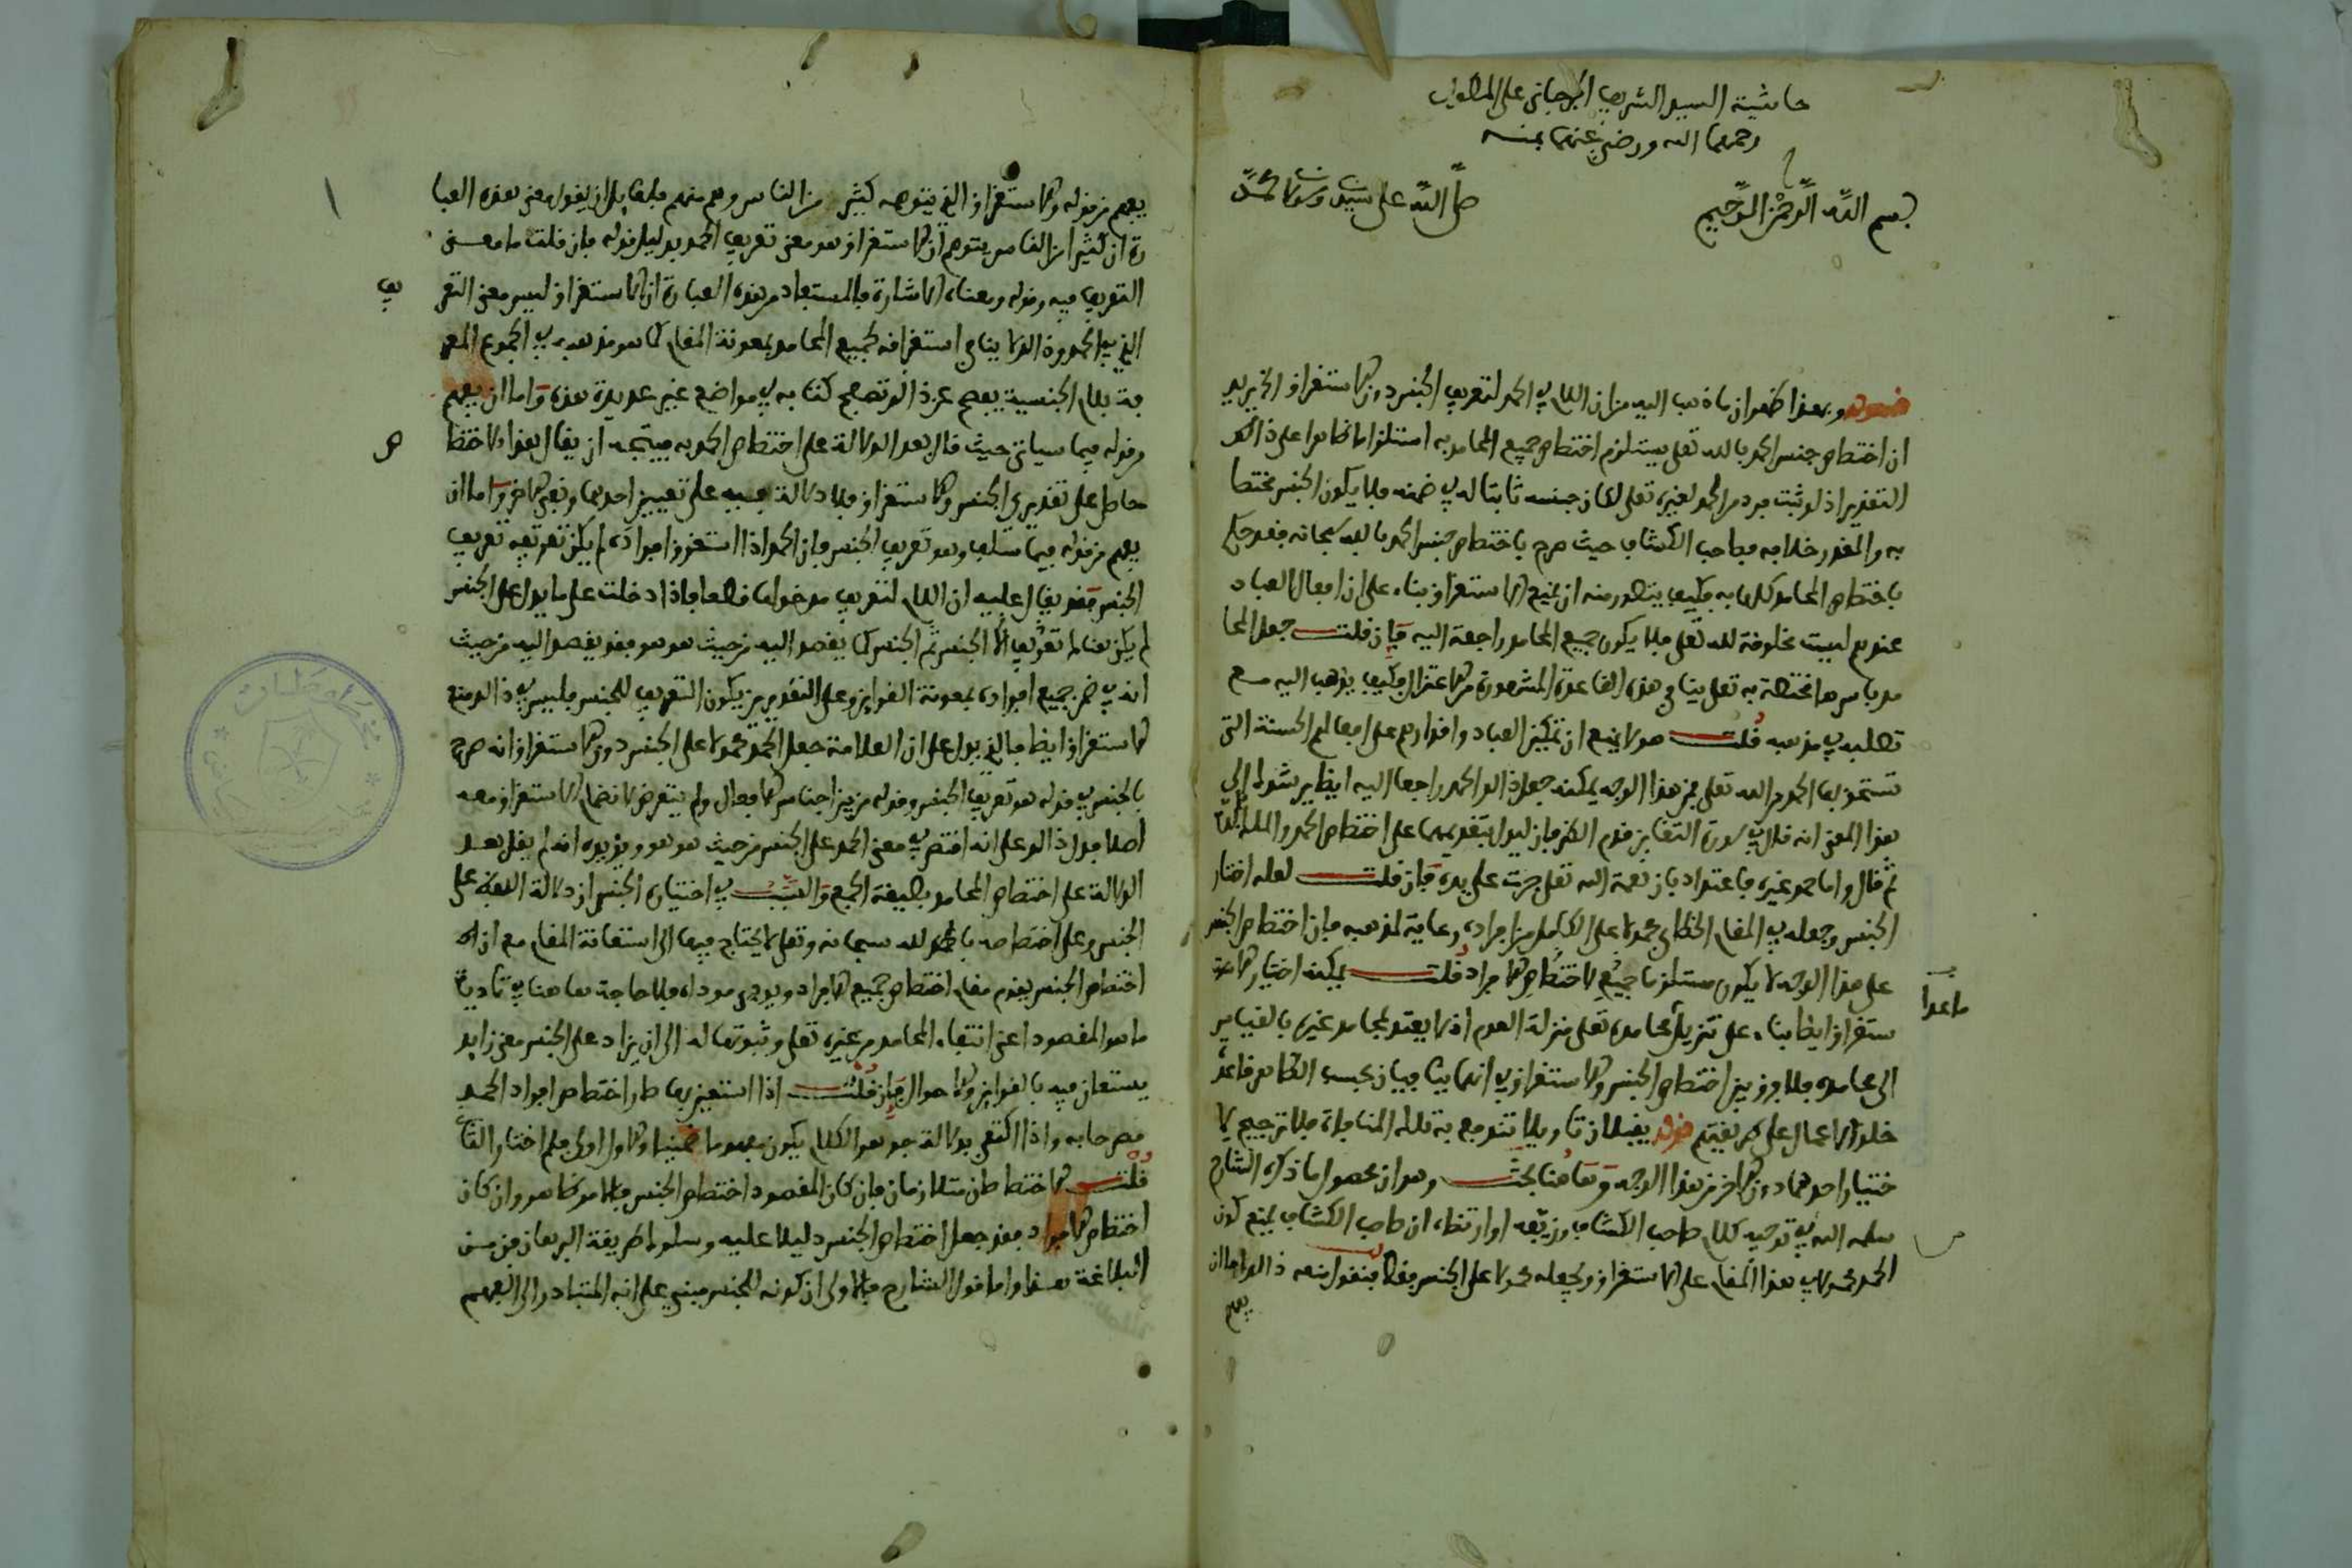 حاشية السيد الشريف الجرجاني على المطول
رحمهما الله ورضي عنهما بمنه
بسم الله الرحمن الرحيم
صلى الله على سيدنا ومولانا محمد
قوله وبهذا ظهر ان ما ذهب اليه من ان اللام في الحمد لتعريف الجنس دون الاستغراق الخ يريد
ان اختصاص جنس الحمد بالله تعلى يستلزم اختصاص جميع المحامد به استلزاما ظاهرا على ذلك
التقدير اذ لو ثبت فرد من الحمد لغيره تعلى لكان جنسه ثابتا له في ضمنه فلا يكون الجنس مختصا
به والمقدر خلافه فصاحب الكشاف حيث صرح باختصاص جنس الحمد بالله سبحانه فقد حكم
باختصاص المحامد كلها به فكيف يتصور منه ان يمنع الاستغراق بناء على ان افعال العباد
عندهم ليست مخلوقة لله تعلى فلا يكون جميع المحامد راجعة اليه فان قلت جعل المحا
مد باسرها مختصة به تعلى ينافي هذه القاعدة المشهورة من الاعتزال فكيف يذهب اليه مع
تصلبه في مذهبه قلت هو لا يمنع ان تمكين العباد واقدارهم على افعالهم الحسنة التي
تستحق بها الحمد من الله تعلى فمن هذا الوجه يمكنه جعل ذلك الحمد راجعا اليه ايضا يرشدك الى
هذا المعنى انه قال في سورة التغابن قدم الظرفان ليدل بتقديمهما على اختصاص الحمد والملك بالله
ثم قال واما حمد غيره فاعتداد بان نعمة الله تعلى جرت على يده فان قلت لعله اختار
الجنس وجعله في المقام الخطابي محمولا على الكامل من افراده رعاية لمذهبه فان اختصاص الجنس
على هذا الوجه لا يكون مستلزما جميع لاختصاص الافراد قلت يمكنه اختيار الا
ما عدا
ستغراق ايضا بناء على تنزيل محامده تعلى منزلة العدم اذ لا يعتد بمحامد غيره بالقياس
الى محامده فلا فرق بين اختصاص الجنس والاستغراق في انهما ينافيان بحسب الظاهر قاعدة
خلق الاعمال على طريقتهم قوله يقبلان تاويلا تندفع به تلك المنافاة فلا ترجيح لا
ختيار احدهما دون الاخر من هذا الوجه وهاهنا بحث وهو ان محصول ما ذكره الشارح
سلمه الله في توجيه كلام صاحب الكشاف وزيفه او ارتضاه ان صاحب الكشاف يمنع كون
الحمد محمولا في هذا المقام على الاستغراق ويجعله محمولا على الجنس فقط فنقول منعه ذلك اما ان
يفهم
يفهم من قوله والاستغراق الذي يتوهمه كثير من الناس وهم منهم فلقائل ان يقول معنى هذه العبا
رة ان كثيرا من الناس يتوهم ان الاستغراق هو معنى تعريف الحمد بدليل قوله فان قلت ما معنى
التعريف فيه وقوله ومعناه الاشارة فالمستفاد من هذه العبارة ان الاستغراق ليس معنى التعر
يف
الذي في الحمد وذلك لا ينافي استغراقه لجميع المحامد بمعونة المقام كما هو مذهبه في الجموع المعر
فة بلام الجنسية يفصح عن ذلك تصفح كتابه في مواضع غير عديدة هذه واما ان يفهم
من قوله فيما سياتي حيث قال بعد الدلالة على اختصاص الحمد به فيتجه ان يقال هذا الاختصا
ص
حاصل على تقديري الجنس والاستغراق فلا دلالة فيه على تعيين احدهما ونفي الاخر واما ان
يفهم من قوله فيما سلف وهو تعريف الجنس فان الحمد اذا استغرق افراده لم يكن تعريفه تعريف
الجنس فقد يقال عليه ان اللام لتعريف مدخولها قطعا فاذا دخلت على ما يدل على الجنس
لم يكن هنالك تعريف الا الجنس ثم الجنس كما يقصد اليه من حيث هو هو فقد يقصد اليه من حيث
انه في ضمن جميع افراده بمعونة القراين وعلى التقديرين يكون التعريف للجنس فليس في ذلك منع
الاستغراق ايضا فالذي يدل على ان العلامة جعل الحمد محمولا على الجنس دون الاستغراق انه صرح
بالجنس في قوله هو تعريف الجنس وقوله من بين اجناس الافعال ولم يتعرض لانضمام الاستغراق معه
اصلا فدل ذلك على انه اقتصر في معنى الحمد على الجنس من حيث هو هو ويؤيده انه لم يقل بعد
الدلالة على اختصاص المحامد بصيغة الجمع والسبب في اختياره الجنس ان دلالة اللفظ على
الجنس وعلى اختصاصه بالله سبحانه وتعلى لا يحتاج فيها الى استعانة المقام مع ان
اختصاص الجنس يقوم مقام اختصاص جميع الافراد ويودي موداه فلا حاجة هاهنا في تادية
ما هو المقصود اعني انتفاء المحامد من غيره تعلى وثبوتها له الى ان يزاد على الجنس معنى زايد
يستعان فيه بالقراين والاحوال فان قلت اذا استعين بها صار اختصاص افراد الحمد
مصرحا به واذا اكتفي بدلالة جوهر الكلام يكون مفهوما ضمنيا والاول اولى فلم اختار الثاني
قلت الاختصاصان متلازمان فان كان المقصود اختصاص الجنس فالامر ظاهر وان كان
اختصاص الافراد فقد جعل اختصاص الجنس دليلا عليه وسلوك طريقة البرهان فن من
البلاغة هذا واما قول الشارح فالاولى ان كونه للجنس مبني على انه المتبادر الى الفهم